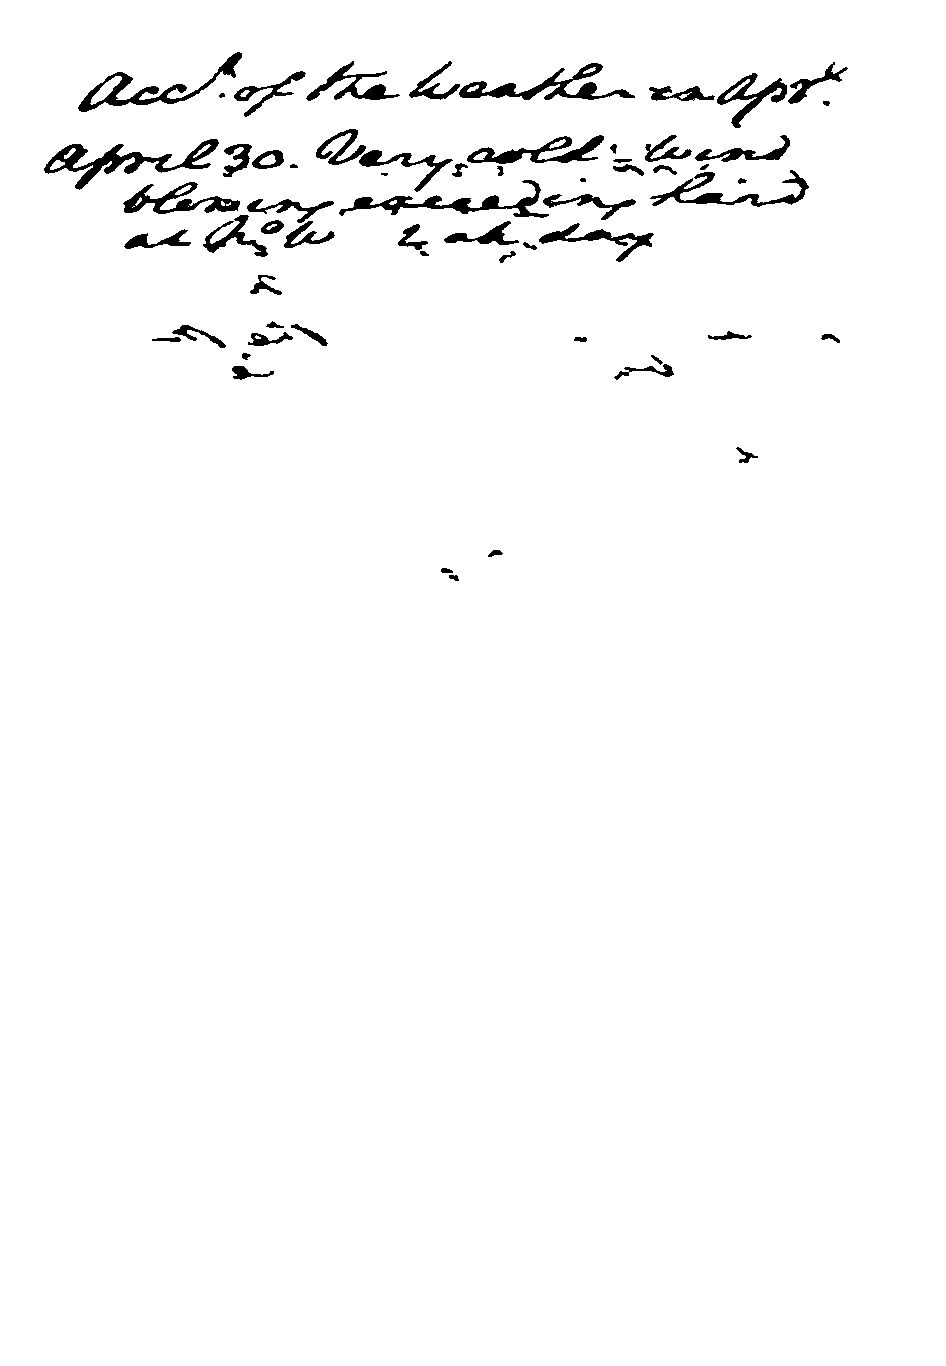 Acct. of the Weather in Aprl.
April 30. Very cold - Wind
blowing exceeding hard
at No W all day